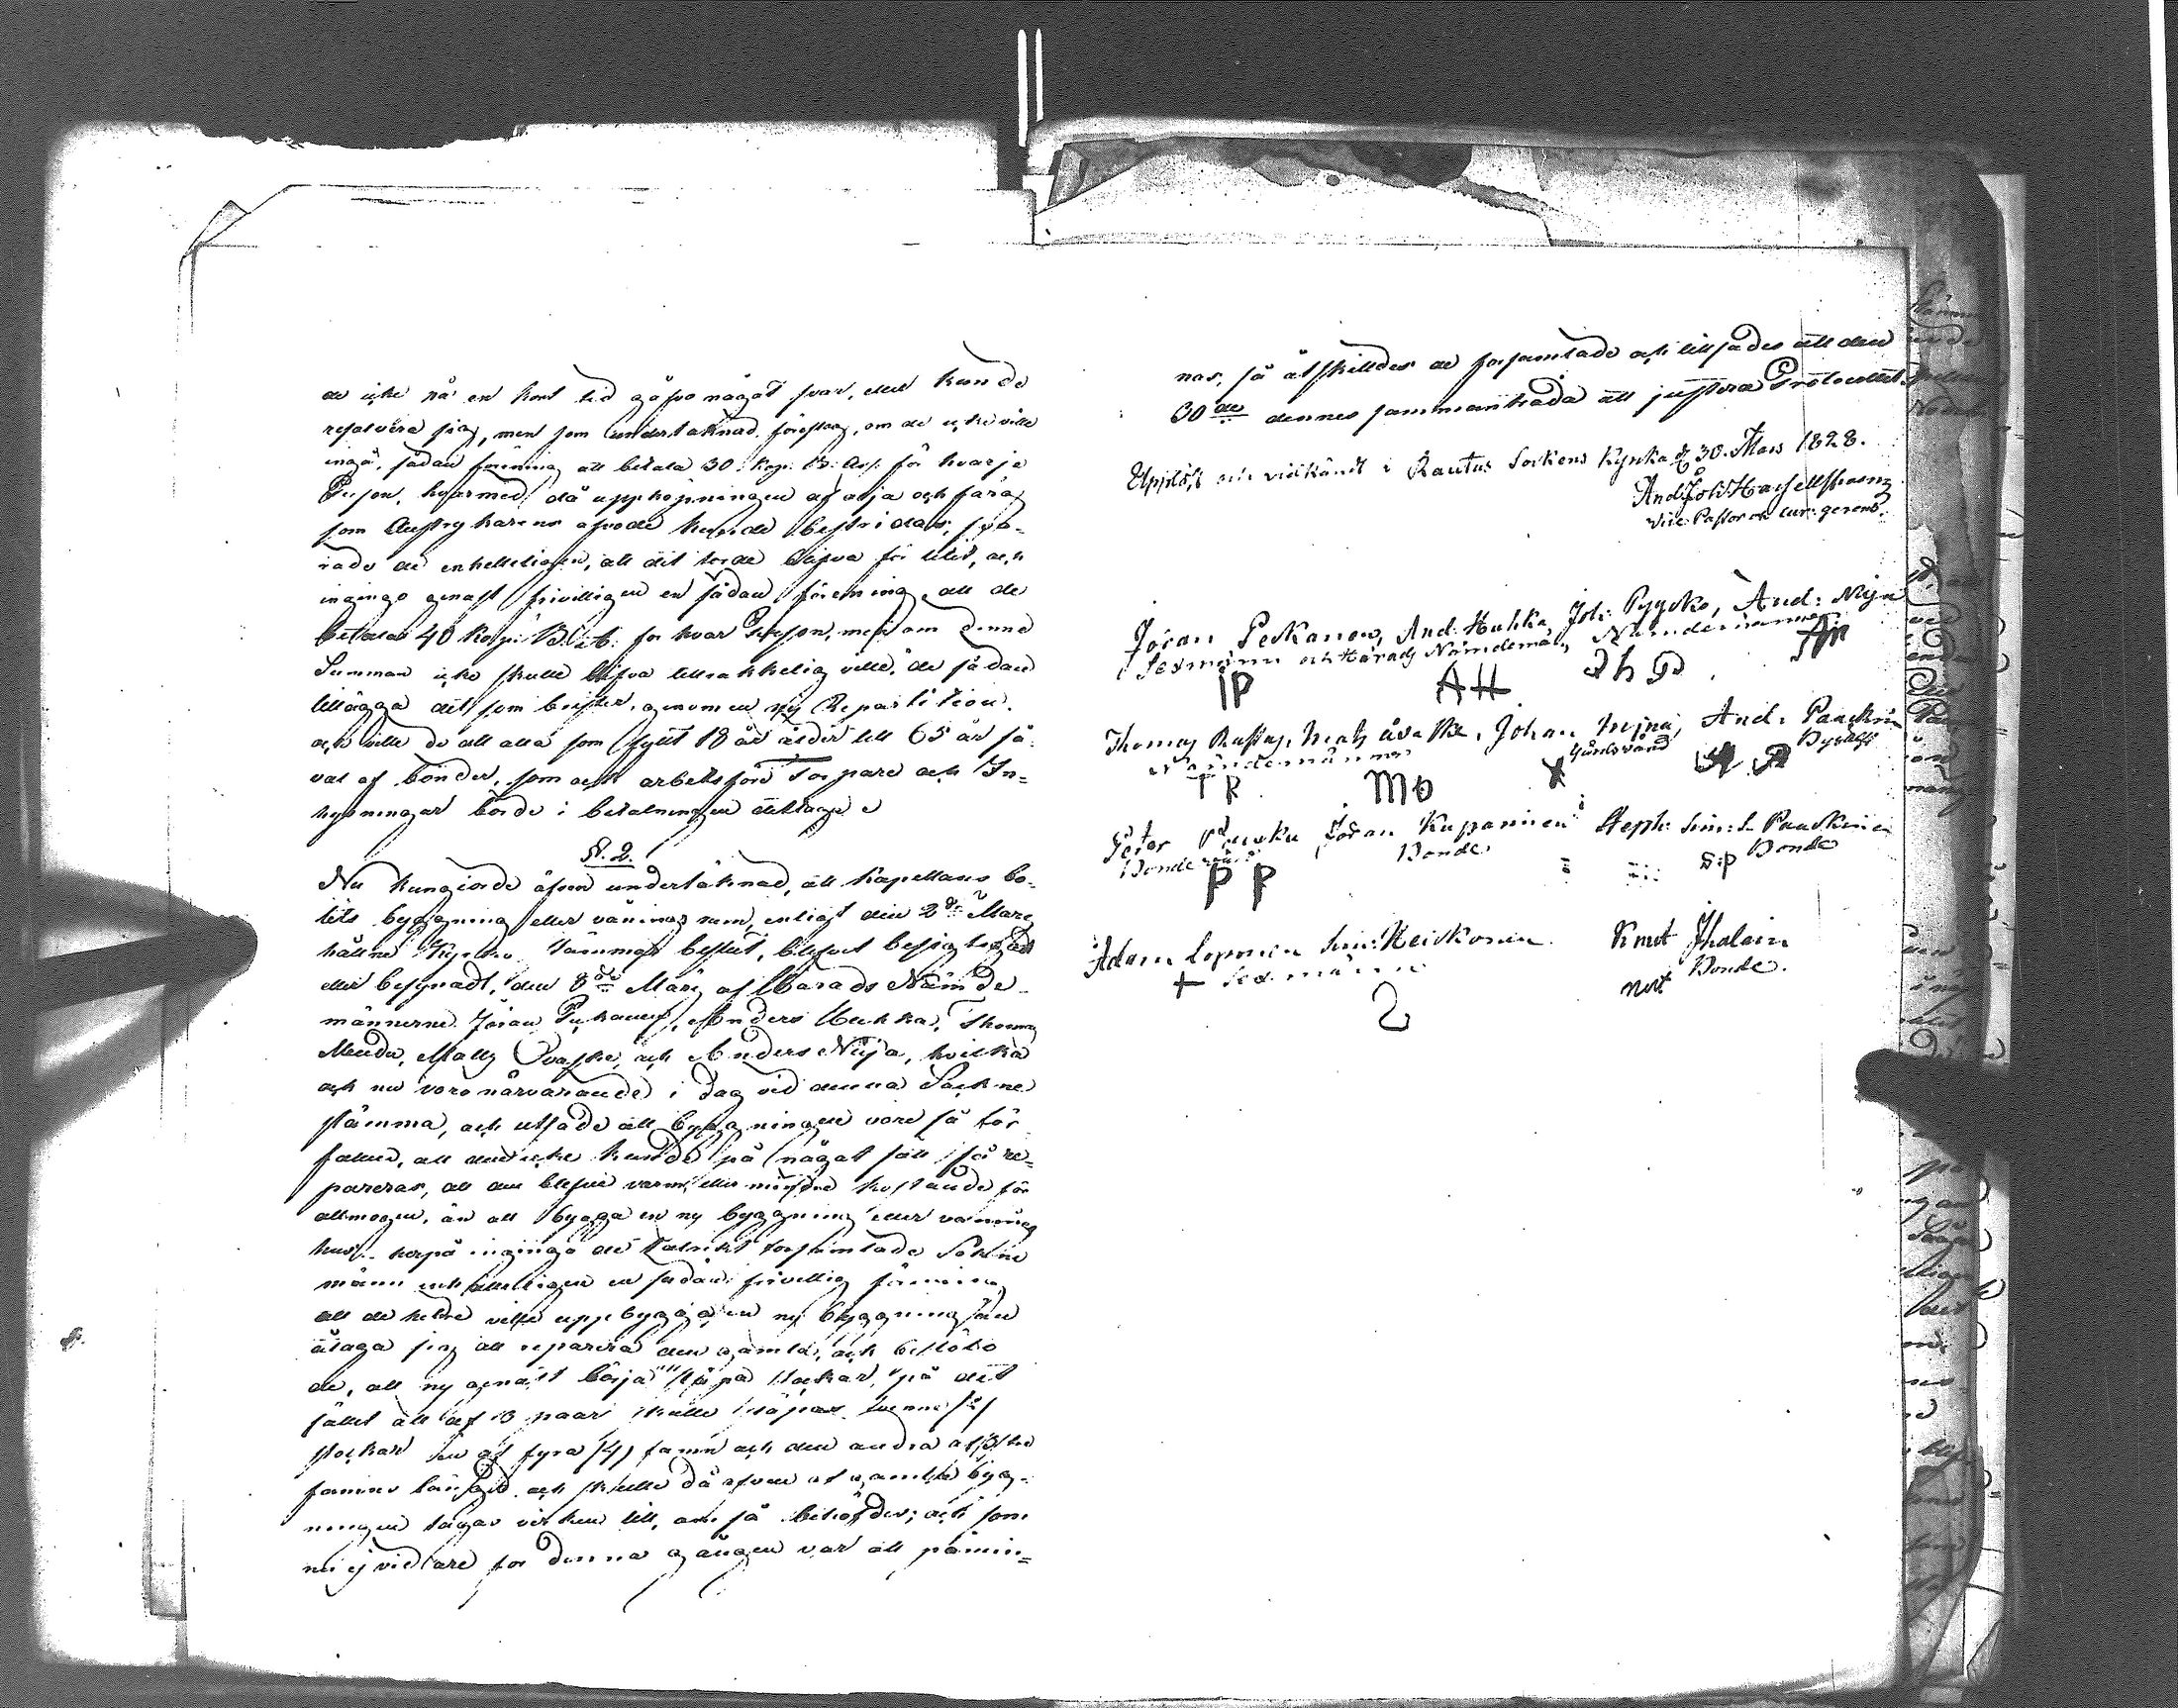 de icke på en kort tid gåfvo något svar, eller kunde
resolvera sig, men som undertecknad föreslog, om de icke ville
ingå, sådan förening att betala 30 Kop: B: Ass. för hvarje
Person, hvarmed då uppköpningen af olja och färg
som kunde bestridas, sva-
rade de enhelleligen, att det torde blifva för litet, och
ingingo genast frivilligen en sådan förening, att de
betalar 40 Kop: B: A. för hvar Person, men om denna
Summan icke skulle blifva tillräckkelig ville de sådan
tillägga det som brister, genom en ny Repartition.
och ville de att alla som fyllt 18 år ålder till 65 år så
val af bönder, som och arbetsföre Torpare och In=
hysningar borde i betalningen deltaga
§. 2.
Nu kungjorde äfven undertecknad, att Kapellans bo-
ställs byggning eller vånings rum, enligt den 2dra Mars
hållne Kyrko stämmas beslut, blifvit besigtigadt
eller besynadt, den 8de Mars af Härads Nämde-
männerne Jöran Peckanen, Anders Hukka, Thomas
Matts Ovaska, och Anders Nuija, hvilka
och nu voro närvarande i dag vid denna Sockne
stämma, och utsade att byggningen vore så för
fallen, att den icke kunde på något sätt så re=
pareras, att den blefve varm, eller mindre kostande för
allmogen, än att bygga en ny byggning eller vånings
hus. herpå ingingo de talrikt församlade Sokne
männ enhelleligen en sådan frivillig förening
att de heldre ville uppbygga en ny byggning än
åtaga sig att reparera den gamla, och beslöto
de, att ny genast börja släpa stockar, på det
sättet att af paar skulle släpas tvenne /2/
stockar en af fyra /4/ famn och den andra af /3/ tre
famns längd och skulle då äfven af gamla byg-
ningen tagas virken till, om så behöfdes; och som
nu ej vidare for denna gången var att påmin=
nas, så åtskilldes de forsamlade och tillsades att den
30de dennes sammanträda att justera Protocollet.
Uppläst och vidkändt i Rautus Sockens Kyrka d 30. Mars 1828.
And. Joh. Hasselstrom
Vice Pastor ok cur: gerens.
Jöran Peckanen, And. Hukka, Joh: Pyyko, And: Nuija
Sexmänn och Härads Nämdemän, Nämndemannen
IP AH JhP AN
Thomas Rastas, Mats Åvaska, Johan Nuija, And: Paackin
Nämdemännen Gårdsvärd Byålder
TR MO X AP
Peter Puuska Jöran Kupanien Steph: Sim:s Paackinen
Bonde Bonde Bonde
PP S:P
Adam Loponen Sim: Keickonen Knut Jhalain
+ Sexmänn Bonde.
nut